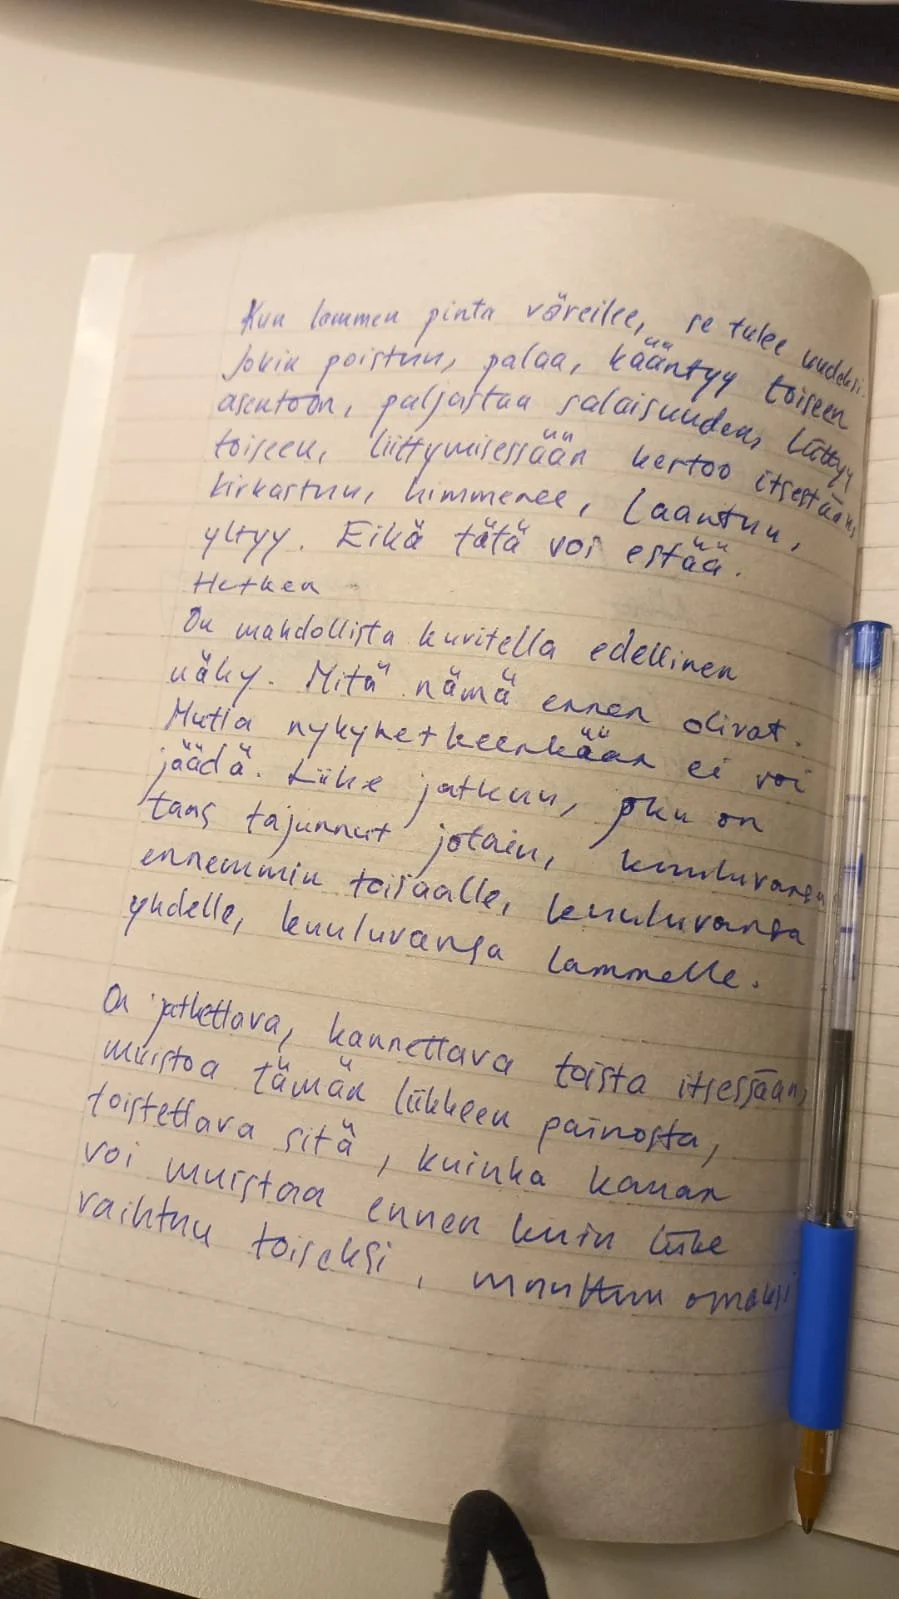 Kun lammen pinta väreilee, se tulee uudeksi.
Jokin poistuu, palaa, kääntyy toiseen
asentoon, paljastaa salaisuuden, liittyy
toiseen, liittymisessään kertoo itsestään,
kirkastuu, himmenee, laantuu,
yltyy. Eikä tätä voi estää.
Hetken
On mahdollista kuvitella edellinen
näky. Mitä nämä ennen olivat.
Mutta nykyhetkeenkään ei voi
jäädä. Liike jatkuu, joku on
taas tajunnut jotain, kuuluvansa
ennemmin toisaalle, kuuluvansa
yhdelle, kuuluvansa lammelle.
On jatkettava, kannettava toista itsessään,
muistoa tämän liikkeen painosta,
toistettava sitä, kuinka kauan
voi muistaa ennen kuin liike
vaihtuu toiseksi, muuttuu omaksi